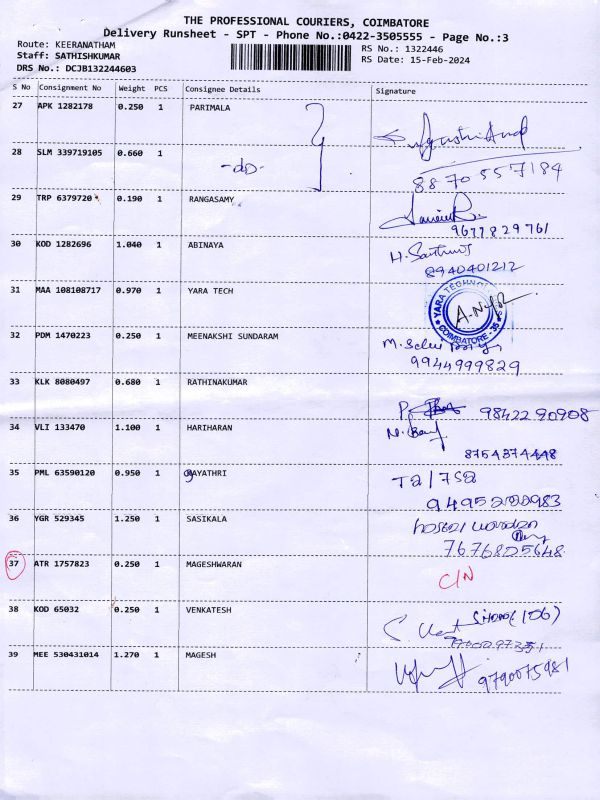 THE PROFESSIONAL COURIERS, COIMBATORE
Delivery Runsheet - SPT - Phone No.:0422-3505555 - Page No.:3
Route: KEERANATHAM
Staff: SATHISHKUMAR
DRS No.: DCJB132244603
RS No.: 1322446
RS Date: 15-Feb-2024
S No Consignment No Weight PCS Consignee Details Signature
27 APK 1282178 0.250 1 PARIMALA
28 SLM 339719105 0.660 1 -do-
8870557184
29 TRP 6379720 0.190 1 RANGASAMY
9677829761
30 KOD 1282696 1.040 1 ABINAYA
8940401212
31 MAA 108108717 0.970 1 YARA TECH
YARA TECHNO
COIMBATORE - 35
32 PDM 1470223 0.250 1 MEENAKSHI SUNDARAM
9944999829
33 KLK 8080497 0.680 1 RATHINAKUMAR
98422 90908
34 VLI 133470 1.100 1 HARIHARAN
8754374448
35 PML 63590120 0.950 1 GAYATHRI
36 YGR 529345 1.250 1 SASIKALA
hostel warden
7676805648
37 ATR 1757823 0.250 1 MAGESHWARAN
C/N
38 KOD 65032 0.250 1 VENKATESH
39 MEE 530431014 1.270 1 MAGESH
9790075981